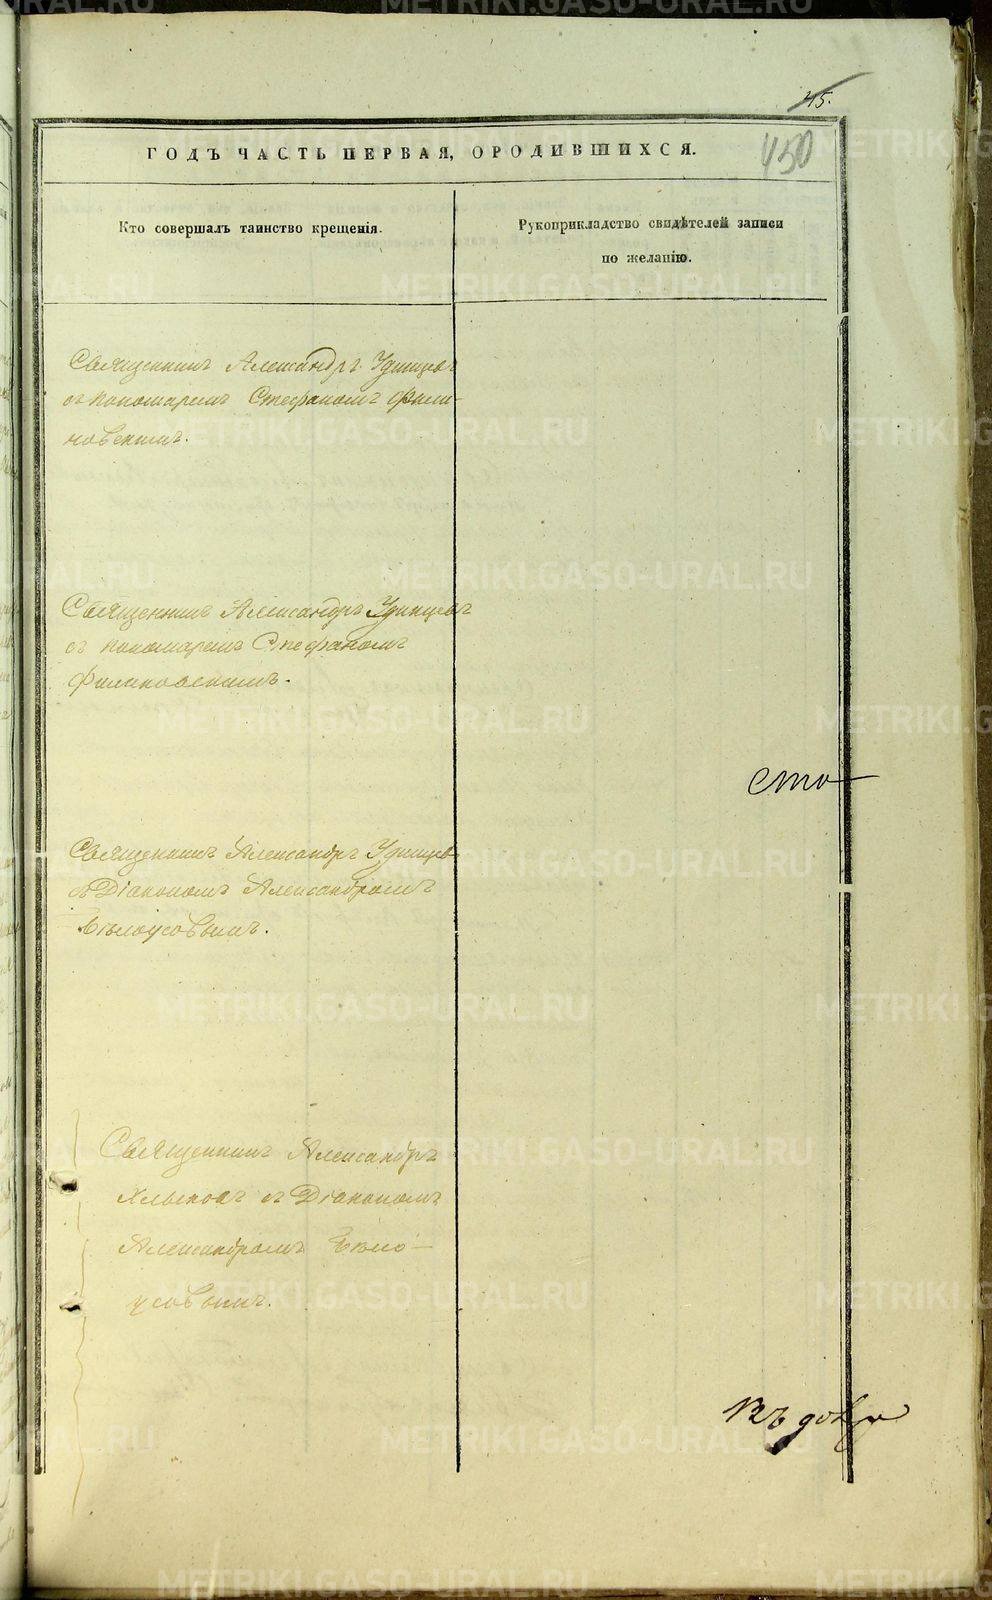 45.
450
ГОДЪ ЧАСТЬ ПЕРВАЯ, ОРОДИВШИХСЯ.
Кто совершалъ таинство крещенія.
Рукоприкладство свидѣтелей записи
по желанію.
Священникъ Александръ Удинцев
съ пономаремъ Стефаномъ Фили-
новскимъ.
Священникъ Александръ Удинцевъ
съ пономаремъ Стефаномъ
Филиновскимъ.
сто
Священникъ Александръ Удинцев
съ Діакономъ Александромъ
Бѣлоусовымъ.
Священникъ Александръ
Хлыновъ съ Діакономъ
Александромъ Бѣло-
усовымъ.
METRIKI.GASO-URAL.RU